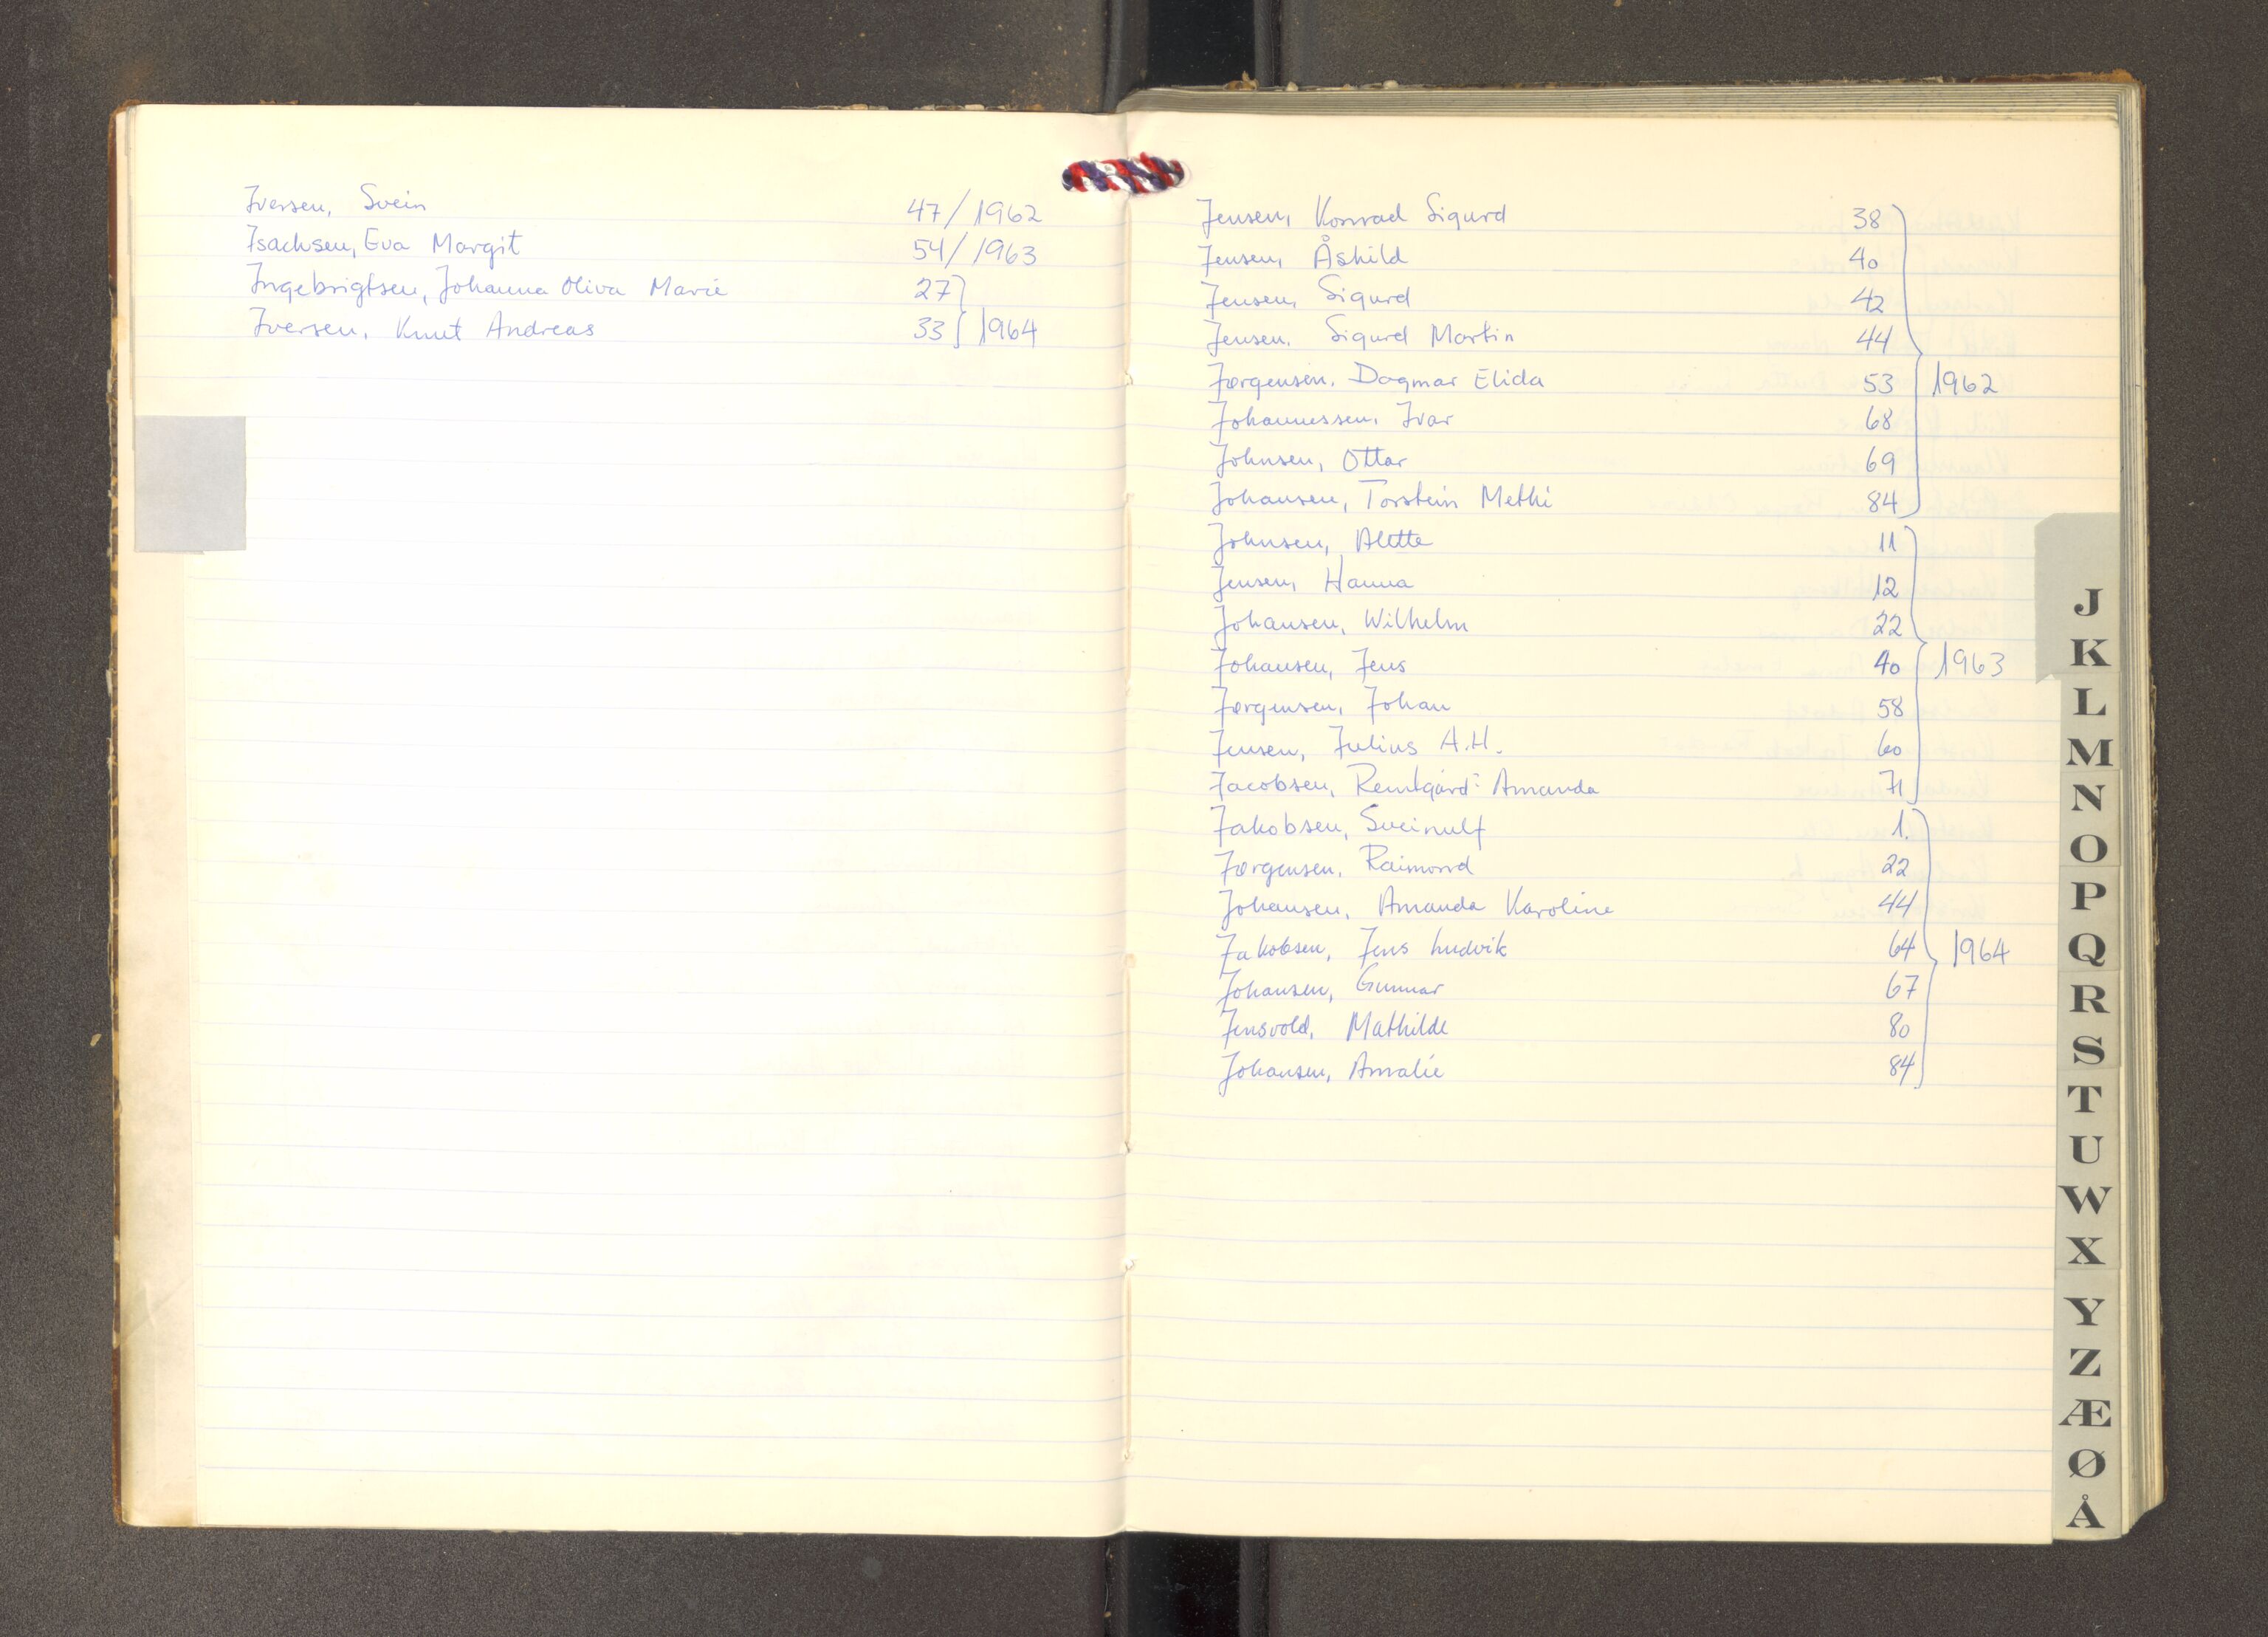 Iversen, Svein 47/1962
Isachsen, Eva Margit 54/1963
Ingebrigtsen, Johanna Oliva Marie 27
Iversen, Knut Andreas 33 1964
Jensen, Konrad Sigurd 38
Jensen, Åshild 40
Jensen, Sigurd 42
Jensen, Sigurd Martin 44
Jørgensen, Dagmar Elida 53 1962
Johannessen, Ivar 68
Johnsen, Ottar 69
Johansen, Torstein Methi 84
Johnsen, Alette 11
Jensen, Hanna 12
Johansen, Wilhelm 22
Johansen, Jens 40 1963
Jørgensen, Johan 58
Jensen, Julius A.H. 60
Jacobsen, Amanda 71
Jakobsen, Sveinulf 1.
Jørgensen, Raimond 22
Johansen, Amanda Karoline 44
Jakobsen, Jens Ludvik 64 1964
Johansen, Gunnar 67
Jensvold, Mathilde 80
Johansen, Amalie 84
J
K
L
M
N
O
P
Q
R
S
T
U
W
X
Y
Z
Æ
Ø
Å